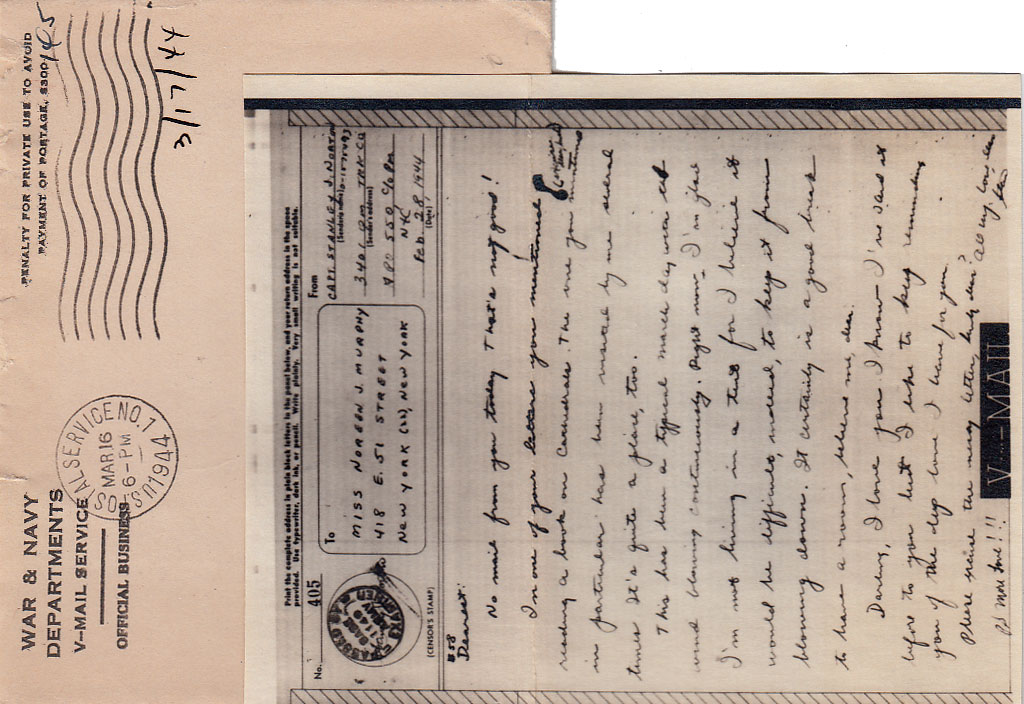 WAR & NAVY
DEPARTMENTS
V-MAIL SERVICE
OFFICIAL BUSINESS
U.S. POSTAL SERVICE NO. 1
MAR 16
6-PM
1944
PENALTY FOR PRIVATE USE TO AVOID
PAYMENT OF POSTAGE, $300
3/17/44
Print the complete address in plain block letters in the panel below, and your return address in the space
provided. Use typewriter, dark ink, or pencil. Write plainly. Very small writing is not suitable.
No. 405
(CENSOR'S STAMP)
To
MISS NOREEN J. MURPHY
418 E. 51 STREET
NEW YORK (22), NEW YORK
From
CAPT. STANLEY J. NORTON
(Sender's name)
3401 QM TRK CO
(Sender's address)
APO 550 C/O PM
NYC
Feb. 28, 1944
(Date)
#58
Dearest:
No mail from you today. That's not good!
In one of your letters you mentioned
reading a book on Cathedrals. The one you mentioned
in particular has been visited by me several
times. It's quite a place, too.
This has been a typical march day with
wind blowing continuously. Right now I'm glad
I'm not living in a tent for I believe it
would be difficult, indeed, to keep it from
blowing down. It certainly is a good break
to have a room, believe me, dear.
Darling, I love you. I know I've said it
before to you but I like to keep reminding
you of the deep love I have for you.
Please excuse the messy letter, dear?
All my love dear
Stan
PS More Love!!!
V-MAIL